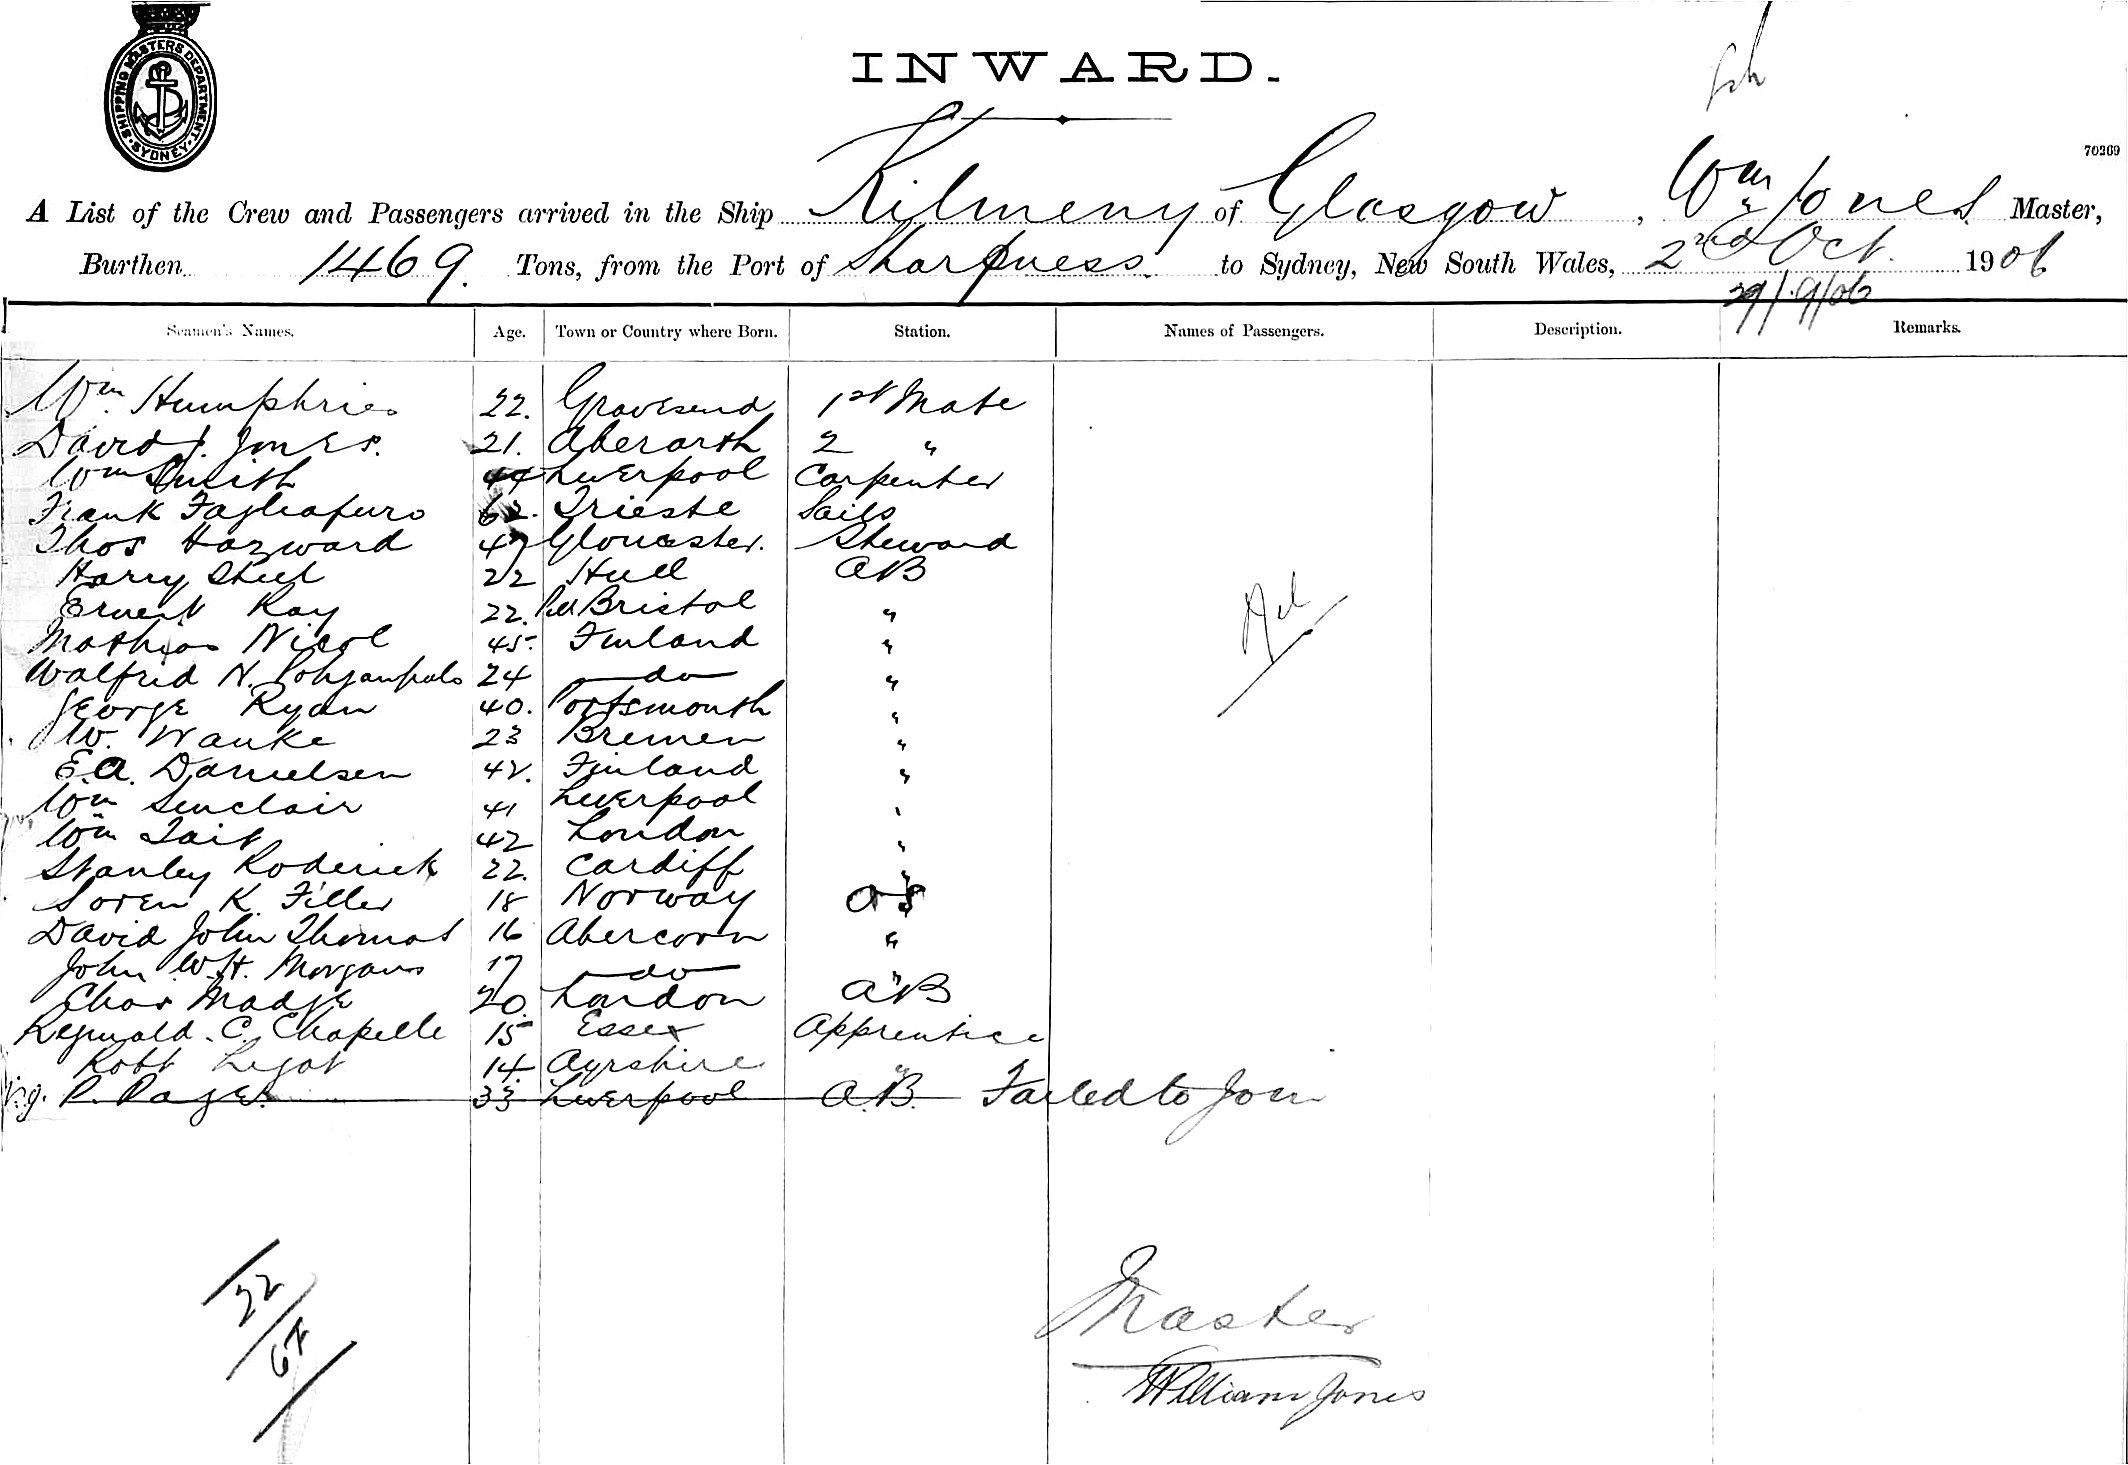 SHIPPING MASTERS DEPARTMENT. SYDNEY.
INWARD.
70269
A List of the Crew and Passengers arrived in the Ship Kilmeny of Glasgow, Wm Jones Master,
Burthen 1469. Tons, from the Port of Sharpness. to Sydney, New South Wales, 2nd Oct. 1906
29/9/06
Seamen's Names. Age. Town or Country where Born. Station. Names of Passengers. Description. Remarks.
Wm. Humphries 22. Gravesend 1st Mate
David J. Jones. 21. Aberarth 2 "
Wm Smith 44 Liverpool Carpenter
Frank Tagliafuro 62. Trieste Sails
Thos Hazward 47 Gloucester. Steward
Harry Steel 22 Hull AB
Ernest Ray 22. Pill Bristol "
Mathias Nicol 45 Finland "
Walfrid N. Pohjanpalo 24 do "
George Ryan 40. Portsmouth "
W. Wanke 23 Bremen "
E.A. Danielsen 42. Finland "
Wm Sinclair 41 Liverpool "
Wm Tait 42 London "
Stanley Roderick 22. Cardiff "
Soren K. Filler 18 Norway OS
David John Thomas 16 Abercorn "
John W.H. Morgans 17 do "
Chas Madge 20. London AB
Reginald. C. Chapelle 15 Essex Apprentice
Robt Legat 14 Ayrshire "
P. Page. 33 Liverpool A.B. Failed to Join
22
67
Master
William Jones